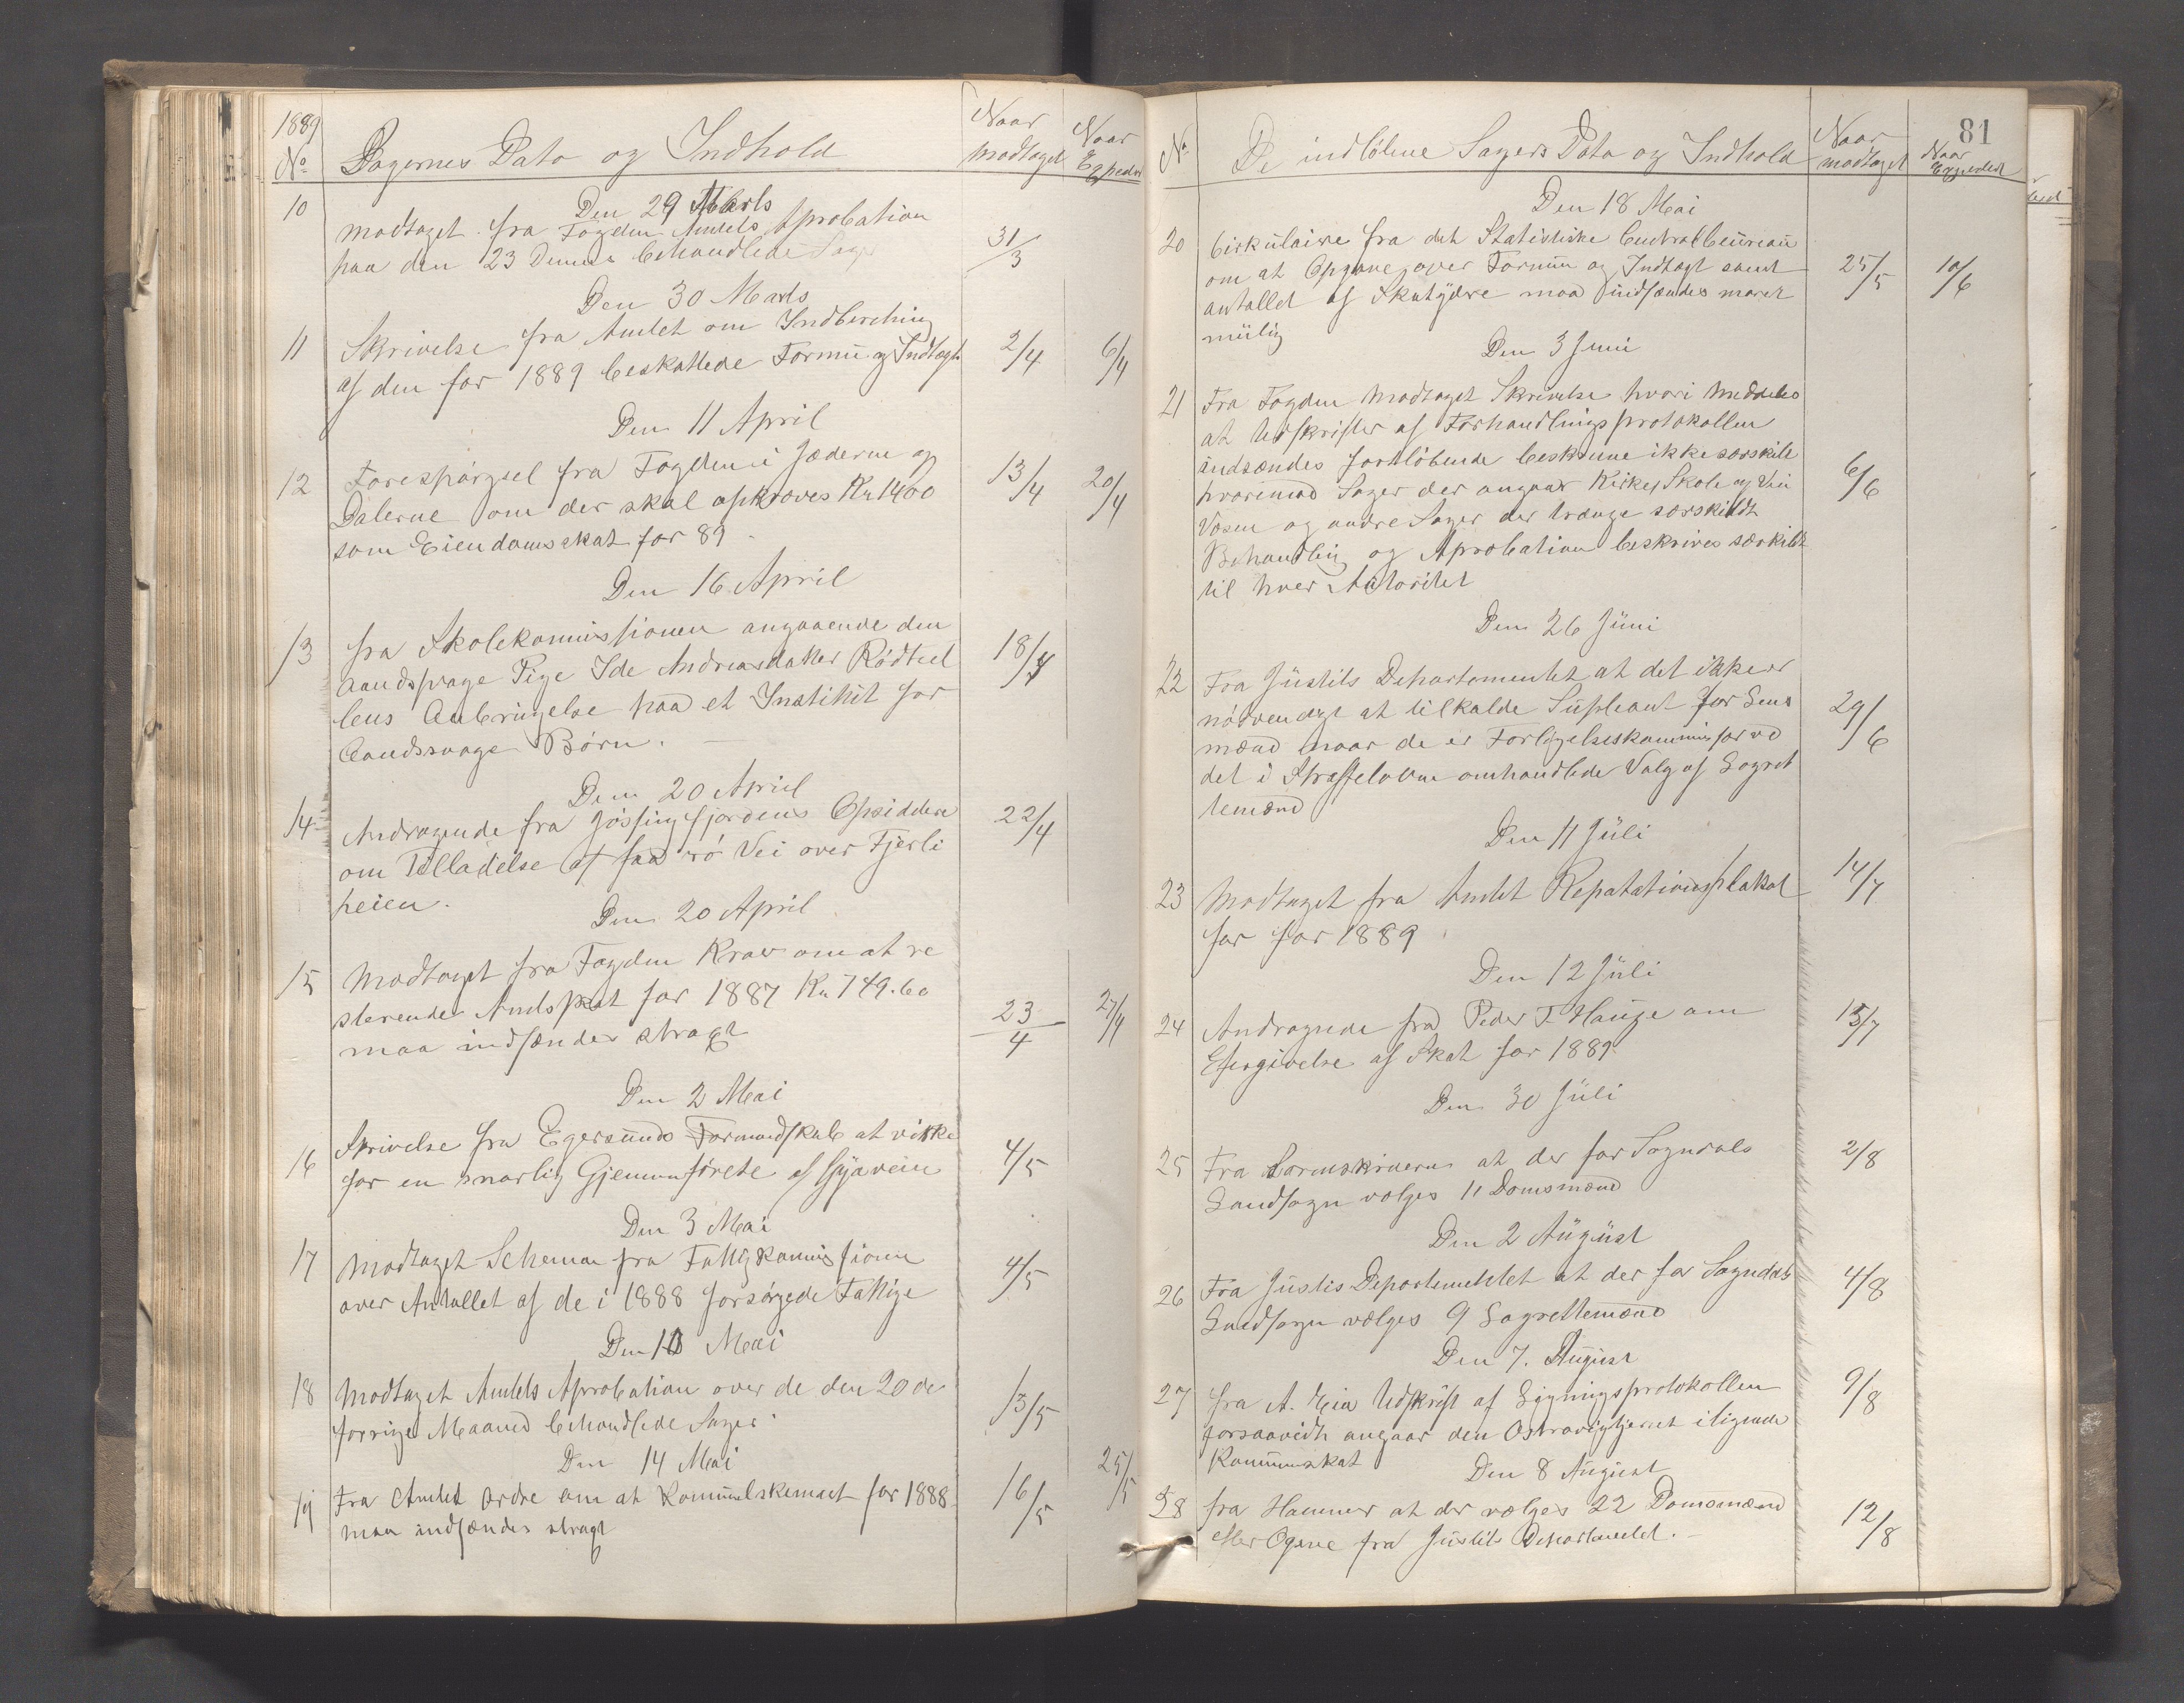 1889
No Sagernes Dato og Indhold Naar modtaget Naar Expedert
Den 29 Marts
10 modtaget fra Fogden Amtets Aprobation
paa den 23 Dennes behandlede Sager 31/3
Den 30 Marts
11 Skrivelse fra Amtet om Indberetning
af den for 1889 beskattede Formu og Indtægt 2/4 6/4
Den 11 April
12 Forespørgsel fra Fogden i Jæderen og 13/4 20/4
Dalerne om der skal opkræves Kr 1400
som Eiendomsskat for 89
Den 16 April
13 fra Skolekommissionen angaaende den 18/4
aandsvage Pige Ide Andreasdatter Rødtvet
lens Anbringelse paa et Institut for
Aandssvage Børn. –
Den 20 April
14 Andragende fra Jøssingfjordens Opsiddere 22/4
om Tilladelse at faa ro Vei over Fjerli
heien.
Den 20 April
15 Modtaget fra Fogden Krav om at re
sterende Amtsskat for 1887 Kr 749.60 23/4 27/4
maa indsændes stragt
Den 2 Mai
16 Skrivelse fra Egersunds Formandskab at virke
for en snarlig Gjennemførelse af Gyaveien 4/5
Den 3 Mai
17 Modtaget Schema fra Fattigkommissionen
over Antallet af de i 1888 forsørgede Fattige 4/5
Den 10 Mai
18 Modtaget Amtets Aprobation over de den 20de
forrige Maaned behandlede Sager 13/5
Den 14 Mai
19 Fra Amtet Ordre om at Kommunelskemaet for 1888 16/5 25/5
maa indsændes stragt
81
No De indløbne Sagers Dato og Indhold Naar modtaget Naar Expedert
Den 18 Mai
20 Cirkulaire fra det Statistiske Centralbeureau
om at Opgave over Formue og Indtægt samt 25/5 10/6
antallet af Skatydere maa indsændes snarest
mulig
Den 3 Juni
21 Fra Fogden Modtaget Skrivelse hvori Meddeles
at Udskrifter af Forhandlingsprotokollen
indsændes fortløbende beskrevne ikke særskilt
hvorimod Sager der angaar Kirke, Skole og Vei 6/6
Væsen og andre Sager der trænge særskildt
Behandling og Aprobation beskrives særkilt
til hver Autoritet
Den 26 Juni
22 Fra Justits Departementet at det ikke er
nødvendigt at tilkalde Supleant for Lens
mænd naar de er Forligelseskommissær ved 29/6
det i Straffeloven omhandlede Valg af Lagret
temænd
Den 11 Juli
23 Modtaget fra Amtet Repatationsplakat 14/7
for for 1889
Den 12 Juli
24 Andragnede fra Peder T. Hauge om 15/7
Eftergivelse af Skat for 1889.
Den 30 Juli
25 Fra Sorenskriveren at der for Sogndals 2/8
Landsogn vælges 11 Domsmænd
Den 2 August
26 Fra Justis Departementet at der for Sogndals 4/8
Landsogn vælges 9 Lagrettemænd
Den 7. August
27 fra A. Eia Udskrift af Ligningsprotokollen 9/8
forsaavidt angaar den Ostravigtjernet ilignede
Kommuneskat
Den 8 August
28 fra Hammer at der vælges 22 Domsmænd 12/8
efter Ogave fra Justits Departementet. –